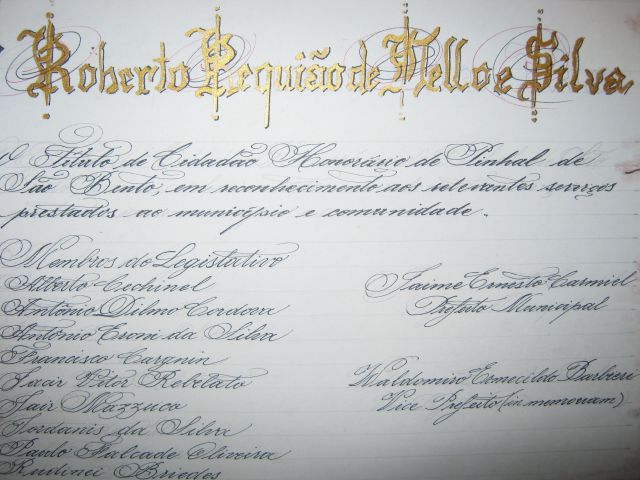 Roberto Requião de Mello e Silva
O Título de Cidadão Honorário de Pinhal de
São Bento, em reconhecimento aos relevantes serviços
prestados ao município e comunidade.
Membros do Legislativo
Alberto Cechinel
Antônio Dilmo Cordova
Antônio Eroni da Silva
Francisco Cargnin
Jacir Vitor Rebelato
Jair Mazzuco
Jordanis da Silva
Paulo Falcade Oliveira
Rudinei Briedes
Jaime Ernesto Carniel
Prefeito Municipal
Waldomiro Ermecildo Barbieri
Vice Prefeito (in memoriam)